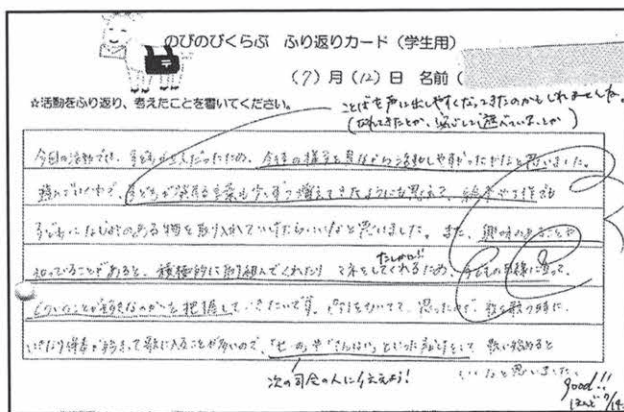 のびのびくらぶ ふり返りカード（学生用）
（7）月（12）日 名前（
☆活動をふり返り、考えたことを書いてください。
ことばを声に出しやすくなってきたのかもしれませんね。
今日の活動では、子どもが 人だったため、全体の様子を見ながら活動しやすかったかなと思いました。
子どもが発する言葉も少しずつ増えてきたようにも思えて、絵本や工作も
子どもになじみのある物を取り入れていけたらいいなと思いました。また、興味のあることや
知っていることがあると、積極的に取り組んでくれたり マネをしてくれるため、子どもの目線に立って、
たしかに!!
どういったことが好きなのかを把握していきたいです。 思ったのが、歌を歌う時に
いきなり伴奏が始まって歌に入ることが多いので、「せーの」や「さんはい」といった声かけをして 歌い始めると
いいなと思いました。
次の司会の人に伝えよう!
good!!